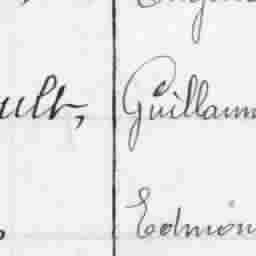 ult, Guillaum
Edmon